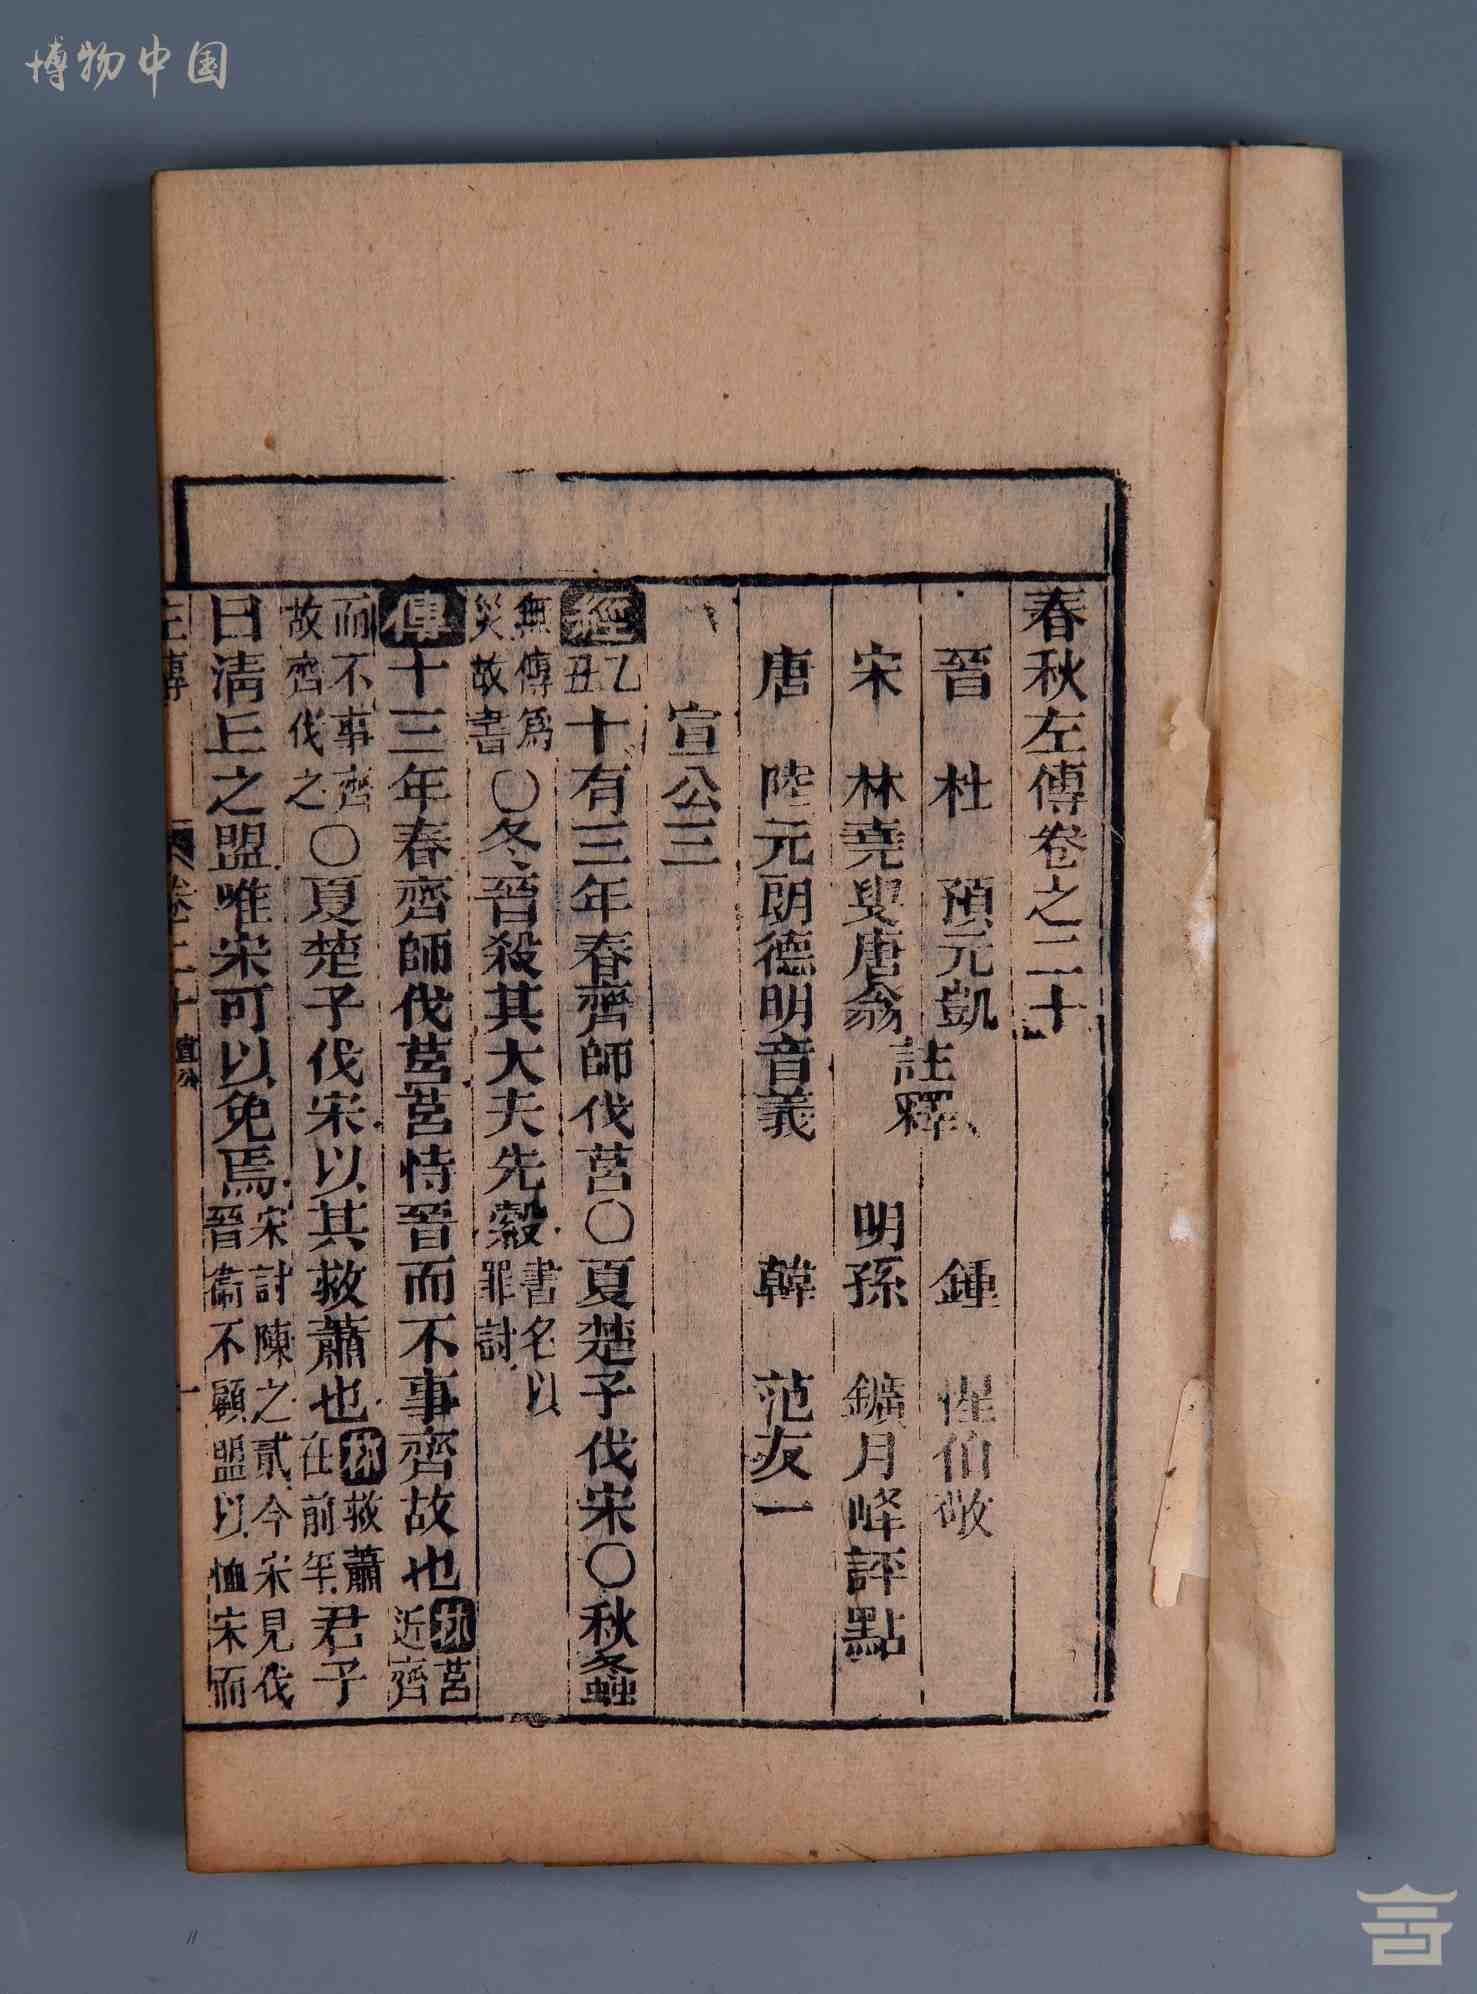 博物中国
春秋左傳卷之二十
晉 杜 預元凱 鍾 惺伯敬
註釋
宋 林堯叟唐翁 明孫 鑛月峰評點
唐 陸元朗德明音義 韓 范友一
宣公三
經乙丑十有三年春齊師伐莒○夏楚子伐宋○秋螽
無傳爲災故書○冬晉殺其大夫先縠書名以罪討
傳十三年春齊師伐莒莒恃晉而不事齊故也林莒近齊
而不事齊故齊伐之○夏楚子伐宋以其救蕭也林救蕭在前年君子
曰清丘之盟唯宋可以免焉宋討陳之貳今宋見伐晉衞不顧盟以恤宋而
左傳 卷二十 宣公 一